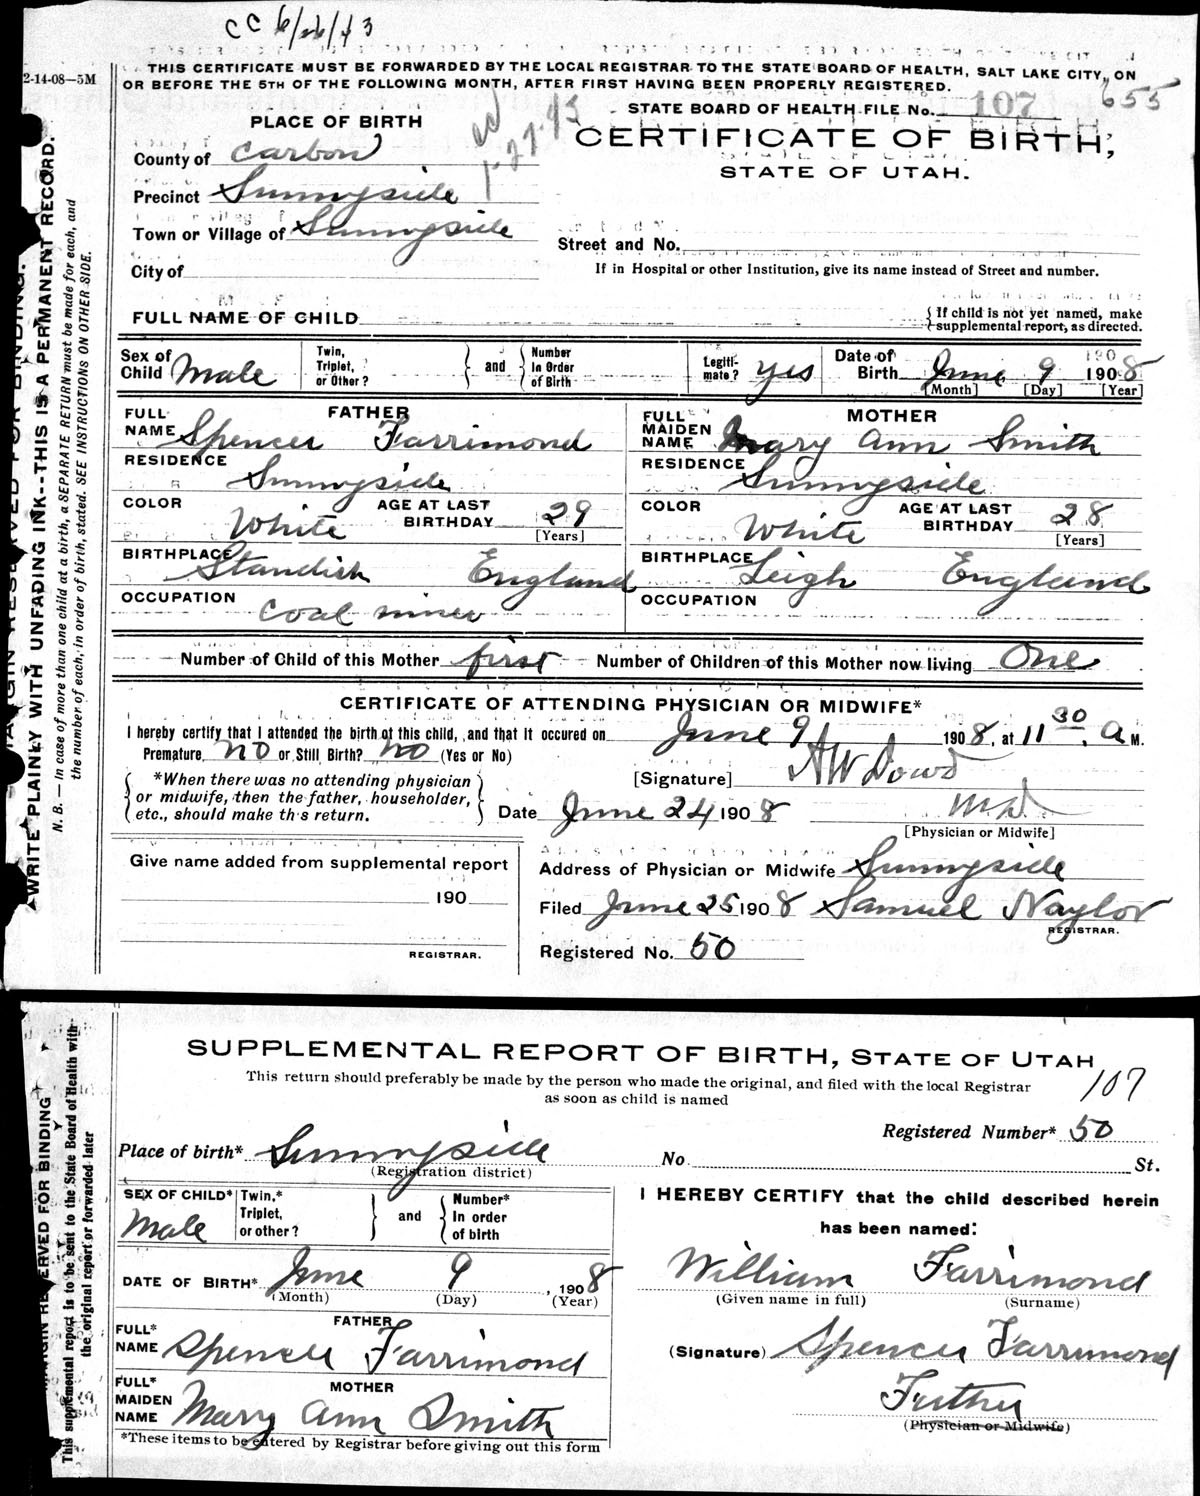 CC 6/26/43
2-14-08—5M
THIS CERTIFICATE MUST BE FORWARDED BY THE LOCAL REGISTRAR TO THE STATE BOARD OF HEALTH, SALT LAKE CITY, ON
OR BEFORE THE 5TH OF THE FOLLOWING MONTH, AFTER FIRST HAVING BEEN PROPERLY REGISTERED.
655
STATE BOARD OF HEALTH FILE No. 107
1-27-43
CERTIFICATE OF BIRTH,
STATE OF UTAH.
PLACE OF BIRTH
County of Carbon
Precinct Sunnyside
Town or Village of Sunnyside
City of
Street and No.
If in Hospital or other Institution, give its name instead of Street and number.
FULL NAME OF CHILD
{If child is not yet named, make
supplemental report, as directed.
Sex of Child Male
Twin, Triplet, or Other? } and { Number In Order of Birth
Legiti-mate? yes
Date of Birth June 9 1908
[Month] [Day] [Year]
FATHER
FULL NAME Spencer Farrimond
RESIDENCE Sunnyside
COLOR White AGE AT LAST BIRTHDAY 29
[Years]
BIRTHPLACE Standish England
OCCUPATION coal miner
MOTHER
FULL MAIDEN NAME Mary Ann Smith
RESIDENCE Sunnyside
COLOR White AGE AT LAST BIRTHDAY 28
[Years]
BIRTHPLACE Leigh England
OCCUPATION
Number of Child of this Mother first Number of Children of this Mother now living One
CERTIFICATE OF ATTENDING PHYSICIAN OR MIDWIFE*
I hereby certify that I attended the birth of this child, and that it occured on June 9 1908, at 11 30 A M.
Premature no or Still Birth? no (Yes or No)
*When there was no attending physician
or midwife, then the father, householder,
etc., should make this return.
[Signature] A W Dowd
Date June 24 1908 M D
[Physician or Midwife]
Give name added from supplemental report
190
REGISTRAR.
Address of Physician or Midwife Sunnyside
Filed June 25 1908 Samuel Naylor
REGISTRAR.
Registered No. 50
WRITE PLAINLY WITH UNFADING INK--THIS IS A PERMANENT RECORD.
N. B. — In case of more than one child at a birth, a SEPARATE RETURN must be made for each, and
the number of each, in order of birth, stated. SEE INSTRUCTIONS ON OTHER SIDE.
SUPPLEMENTAL REPORT OF BIRTH, STATE OF UTAH
This return should preferably be made by the person who made the original, and filed with the local Registrar
as soon as child is named
107
Registered Number* 50
Place of birth* Sunnyside No. St.
(Registration district)
SEX OF CHILD* Male
Twin,* Triplet, or other? } and { Number* In order of birth
DATE OF BIRTH* June 9, 1908
(Month) (Day) (Year)
FATHER
FULL* NAME Spencer Farrimond
MOTHER
FULL* MAIDEN NAME Mary Ann Smith
*These items to be entered by Registrar before giving out this form
I HEREBY CERTIFY that the child described herein
has been named:
William Farrimond
(Given name in full) (Surname)
(Signature) Spencer Farrimond
Father
(Physician or Midwife)
MARGIN RESERVED FOR BINDING
This supplemental report is to be sent to the State Board of Health with
the original report or forwarded later